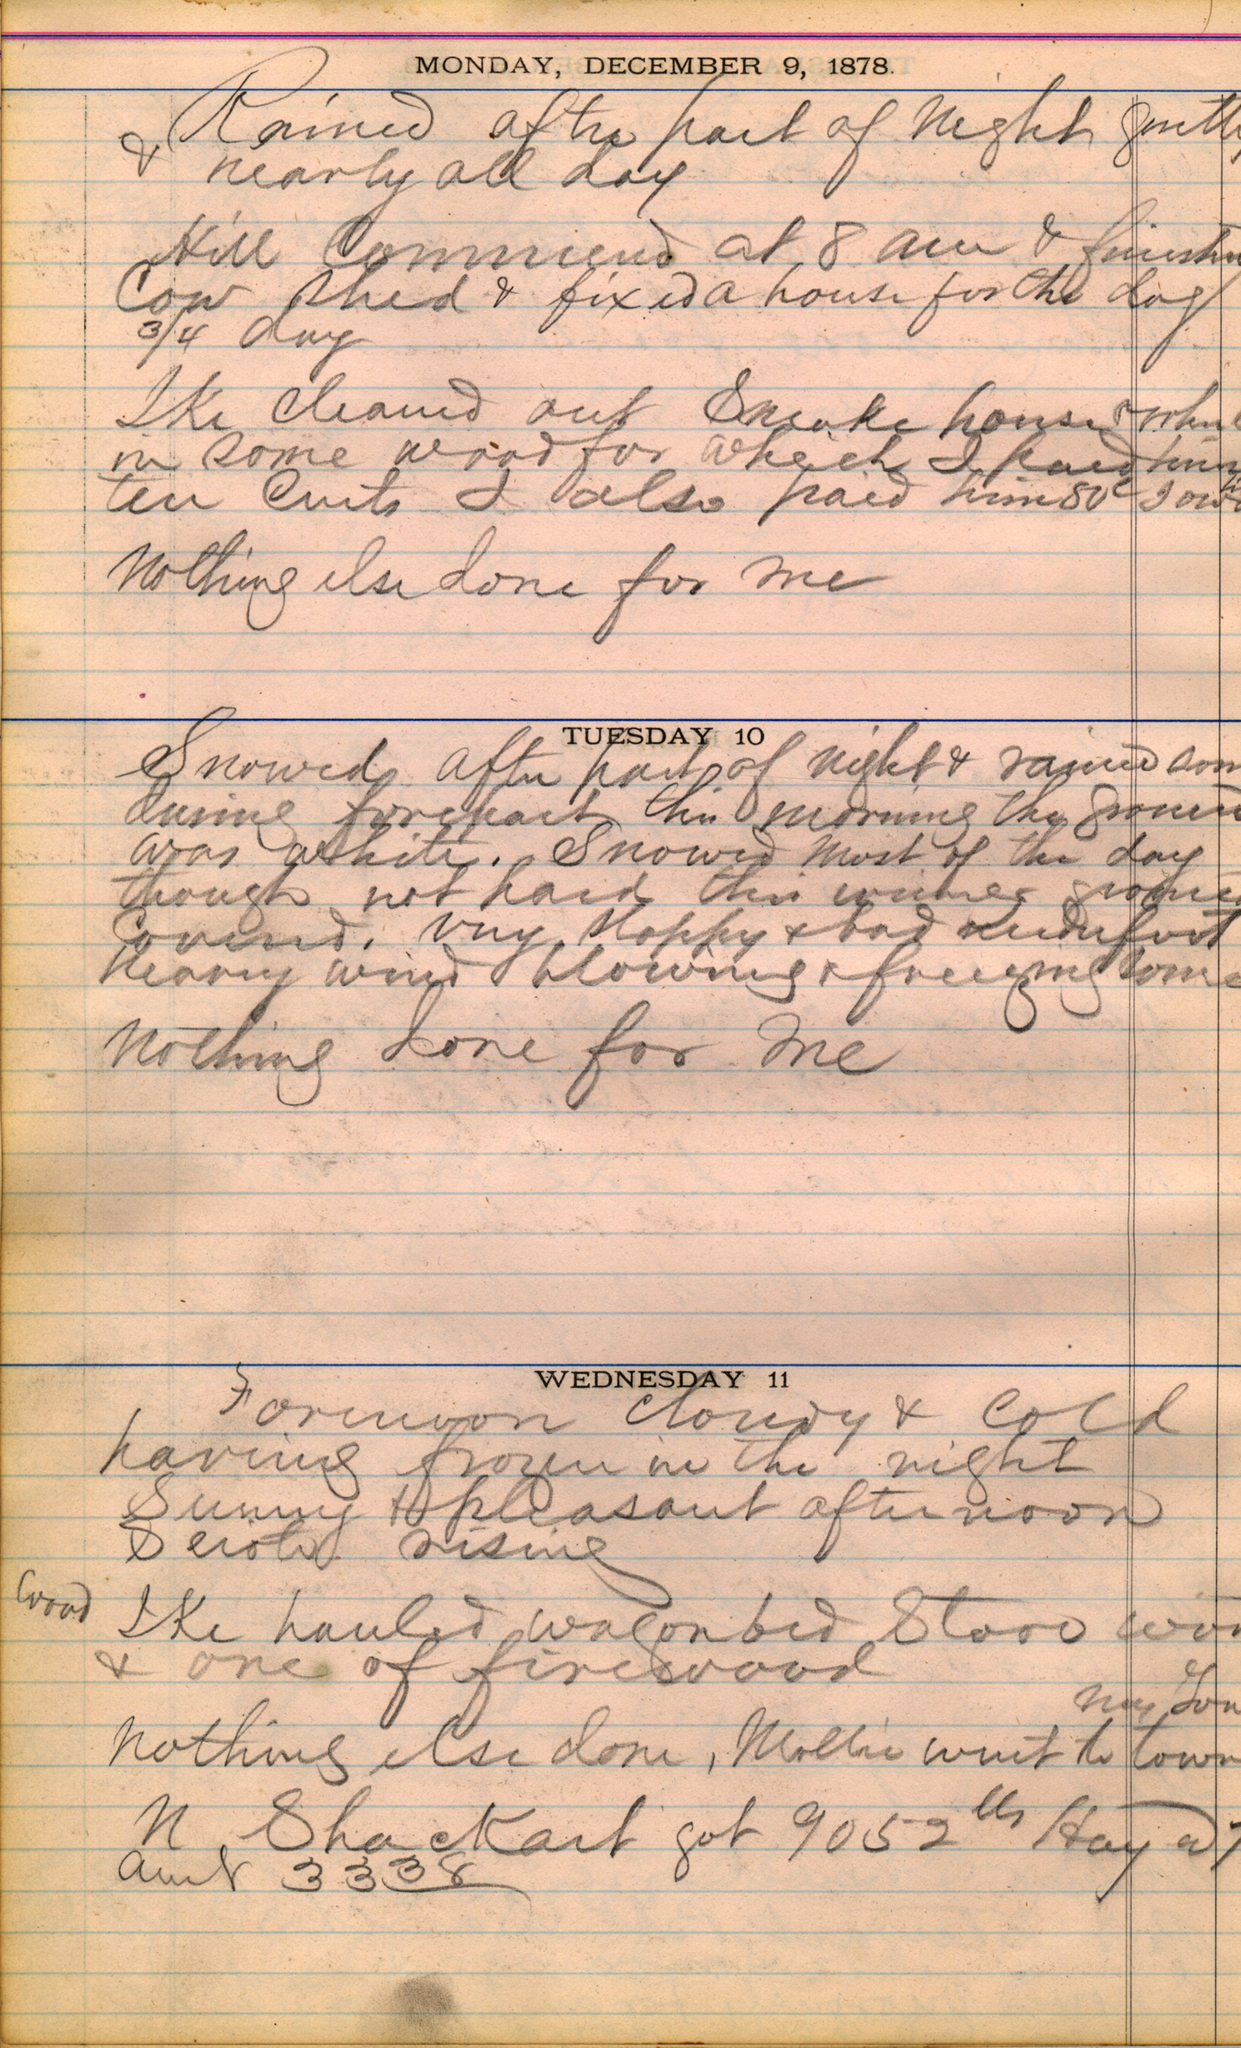 MONDAY, DECEMBER 9, 1878.
Rained after part of Night gently
& nearly all day
Hill Commencd at 8 am &
Cow shed & fixed a house for the dog
3/4 day
Ike cleaned out Smoke house &
in some wood for which I paid him
ten Cents I also paid him 50c I
Nothing else done for me
TUESDAY 10
Snowed after part of night & rained som
during forepart this morning the ground
was white. Snowed most of the day
though not hard this ground
Coverd. Very Sloppy & bad underfoot
heavy wind blowing & freezing some
Nothing done for me
WEDNESDAY 11
Forenoon Cloudy & Cold
having frozen in the night
Sunny & pleasant afternoon
Scioto rising
Wood Ike hauled wagonbed Stove woo
& one of firewood
my Son
Nothing else done, Mollie went to town
N Shackart got 9052 lbs Hay
Amt 3338